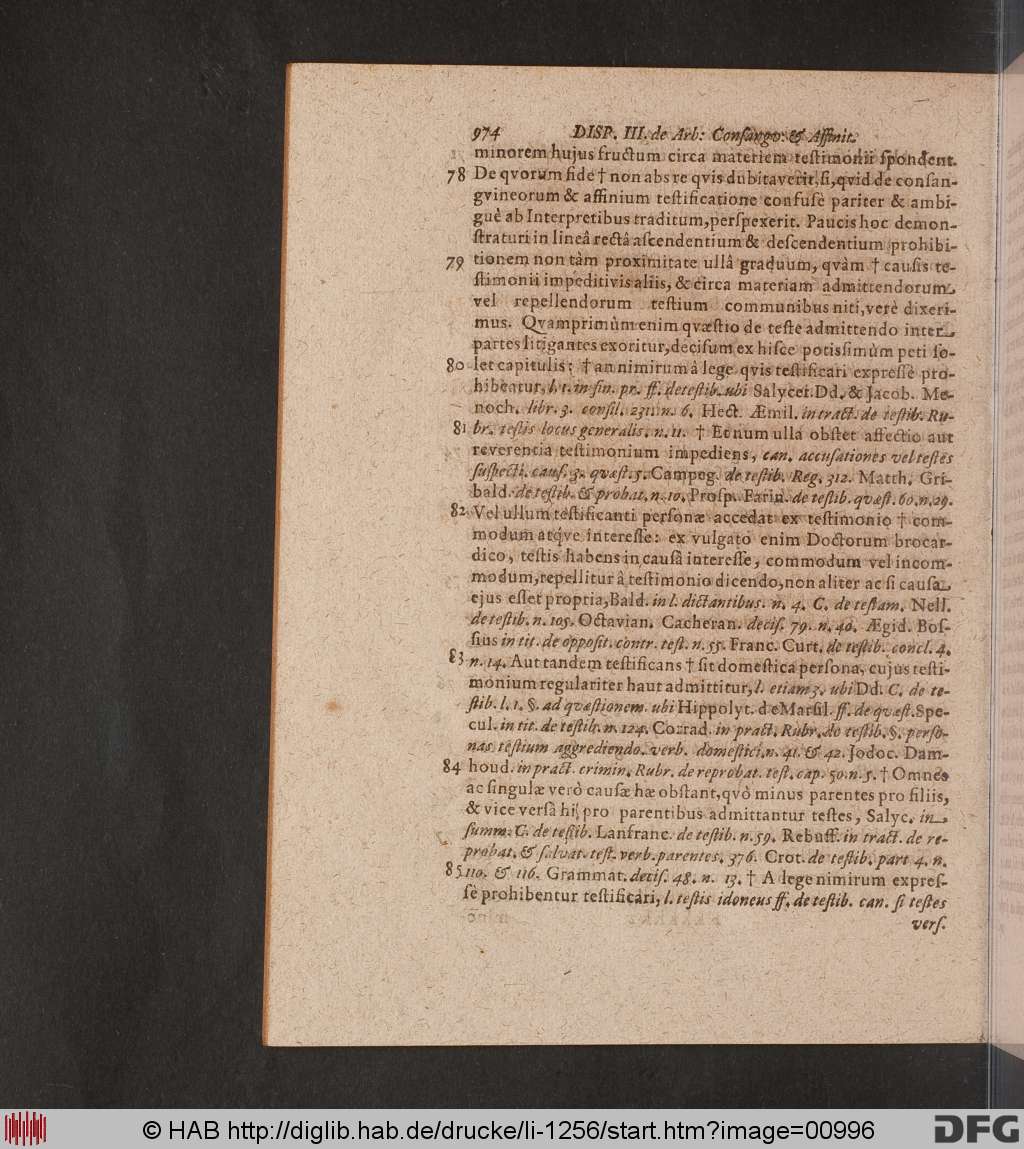 974 DISP. III. de Arb: Consango: & Affinit.
minorem hujus fructum circa materiem testimonii spondent.
78 De qvorum fide † non abs re qvis dubitaverit, si, qvid de consan-
gvineorum & affinium testificatione confusè pariter & ambi-
guè ab Interpretibus traditum, perspexerit. Paucis hoc demon-
straturi in lineâ rectâ ascendentium & descendentium prohibi-
79 tionem non tàm proximitate ullâ graduum, qvàm † causis te-
stimonii impeditivis aliis, & circa materiam admittendorum
vel repellendorum testium communibus niti, verè dixeri-
mus. Qvamprimùm enim qvæstio de teste admittendo inter
partes litigantes exoritur, decisum ex hisce potissimùm peti so-
80 let capitulis: † an nimirum â lege qvis testificari expressè pro-
hibeatur, l. 1. in fin. pr. ff. de testib. ubi Salycet. Dd. & Jacob. Me-
noch. libr. 3. consil. 231. n. 6. Hect. Æmil. in tract. de testib. Ru-
81 br. testis locus generalis. n. 11. † Et num ulla obstet affectio aut
reverentia testimonium impediens, can. accusationes vel testes
suspecti. caus. 3. quæst. 5. Campeg. de testib. Reg. 312. Matth. Gri-
bald. de testib. & probat. n. 10. Prosp. Farin. de testib. quæst. 60. n. 29.
82 Vel ullum testificanti personæ accedat ex testimonio † com-
modum atqve interesse: ex vulgato enim Doctorum brocar-
dico, testis habens in causâ interesse, commodum vel incom-
modum, repellitur â testimonio dicendo, non aliter ac si causa
ejus esset propria, Bald. in l. dictantibus. n. 4. C. de testam. Nell.
de testib. n. 105. Octavian. Cacheran. decis. 79. n. 40. Ægid. Bos-
sius in tit. de opposit. contr. test. n. 55. Franc. Curt. de testib. concl. 4.
83 n. 14. Aut tandem testificans † sit domestica persona, cujus testi-
monium regulariter haut admittitur, l. etiam 3. ubi Dd. C. de te-
stib. l. 1. §. ad quæstionem. ubi Hippolyt. de Marsil. ff. de quæst. Spe-
cul. in tit. de testib. n. 124. Corrad. in pract. Rubr. de testib. §. perso-
nas testium aggrediendo. verb. domestici. n. 41. & 42. Jodoc. Dam-
84 houd. in pract. crimin. Rubr. de reprobat. test. cap. 50. n. 5. † Omnes
ac singulæ verò causæ hæ obstant, qvò minus parentes pro filiis,
& vice versâ hi pro parentibus admittantur testes, Salyc. in
summ. C. de testib. Lanfranc. de testib. n. 59. Rebuff. in tract. de re-
probat. & salvat. test. verb. parentes. 376. Crot. de testib. part. 4. n.
85 110. & 116. Grammat. decis. 48. n. 13. † A lege nimirum expres-
sè prohibentur testificari, l. testis idoneus ff. de testib. can. si testes
vers.
© HAB http://diglib.hab.de/drucke/li-1256/start.htm?image=00996
DFG